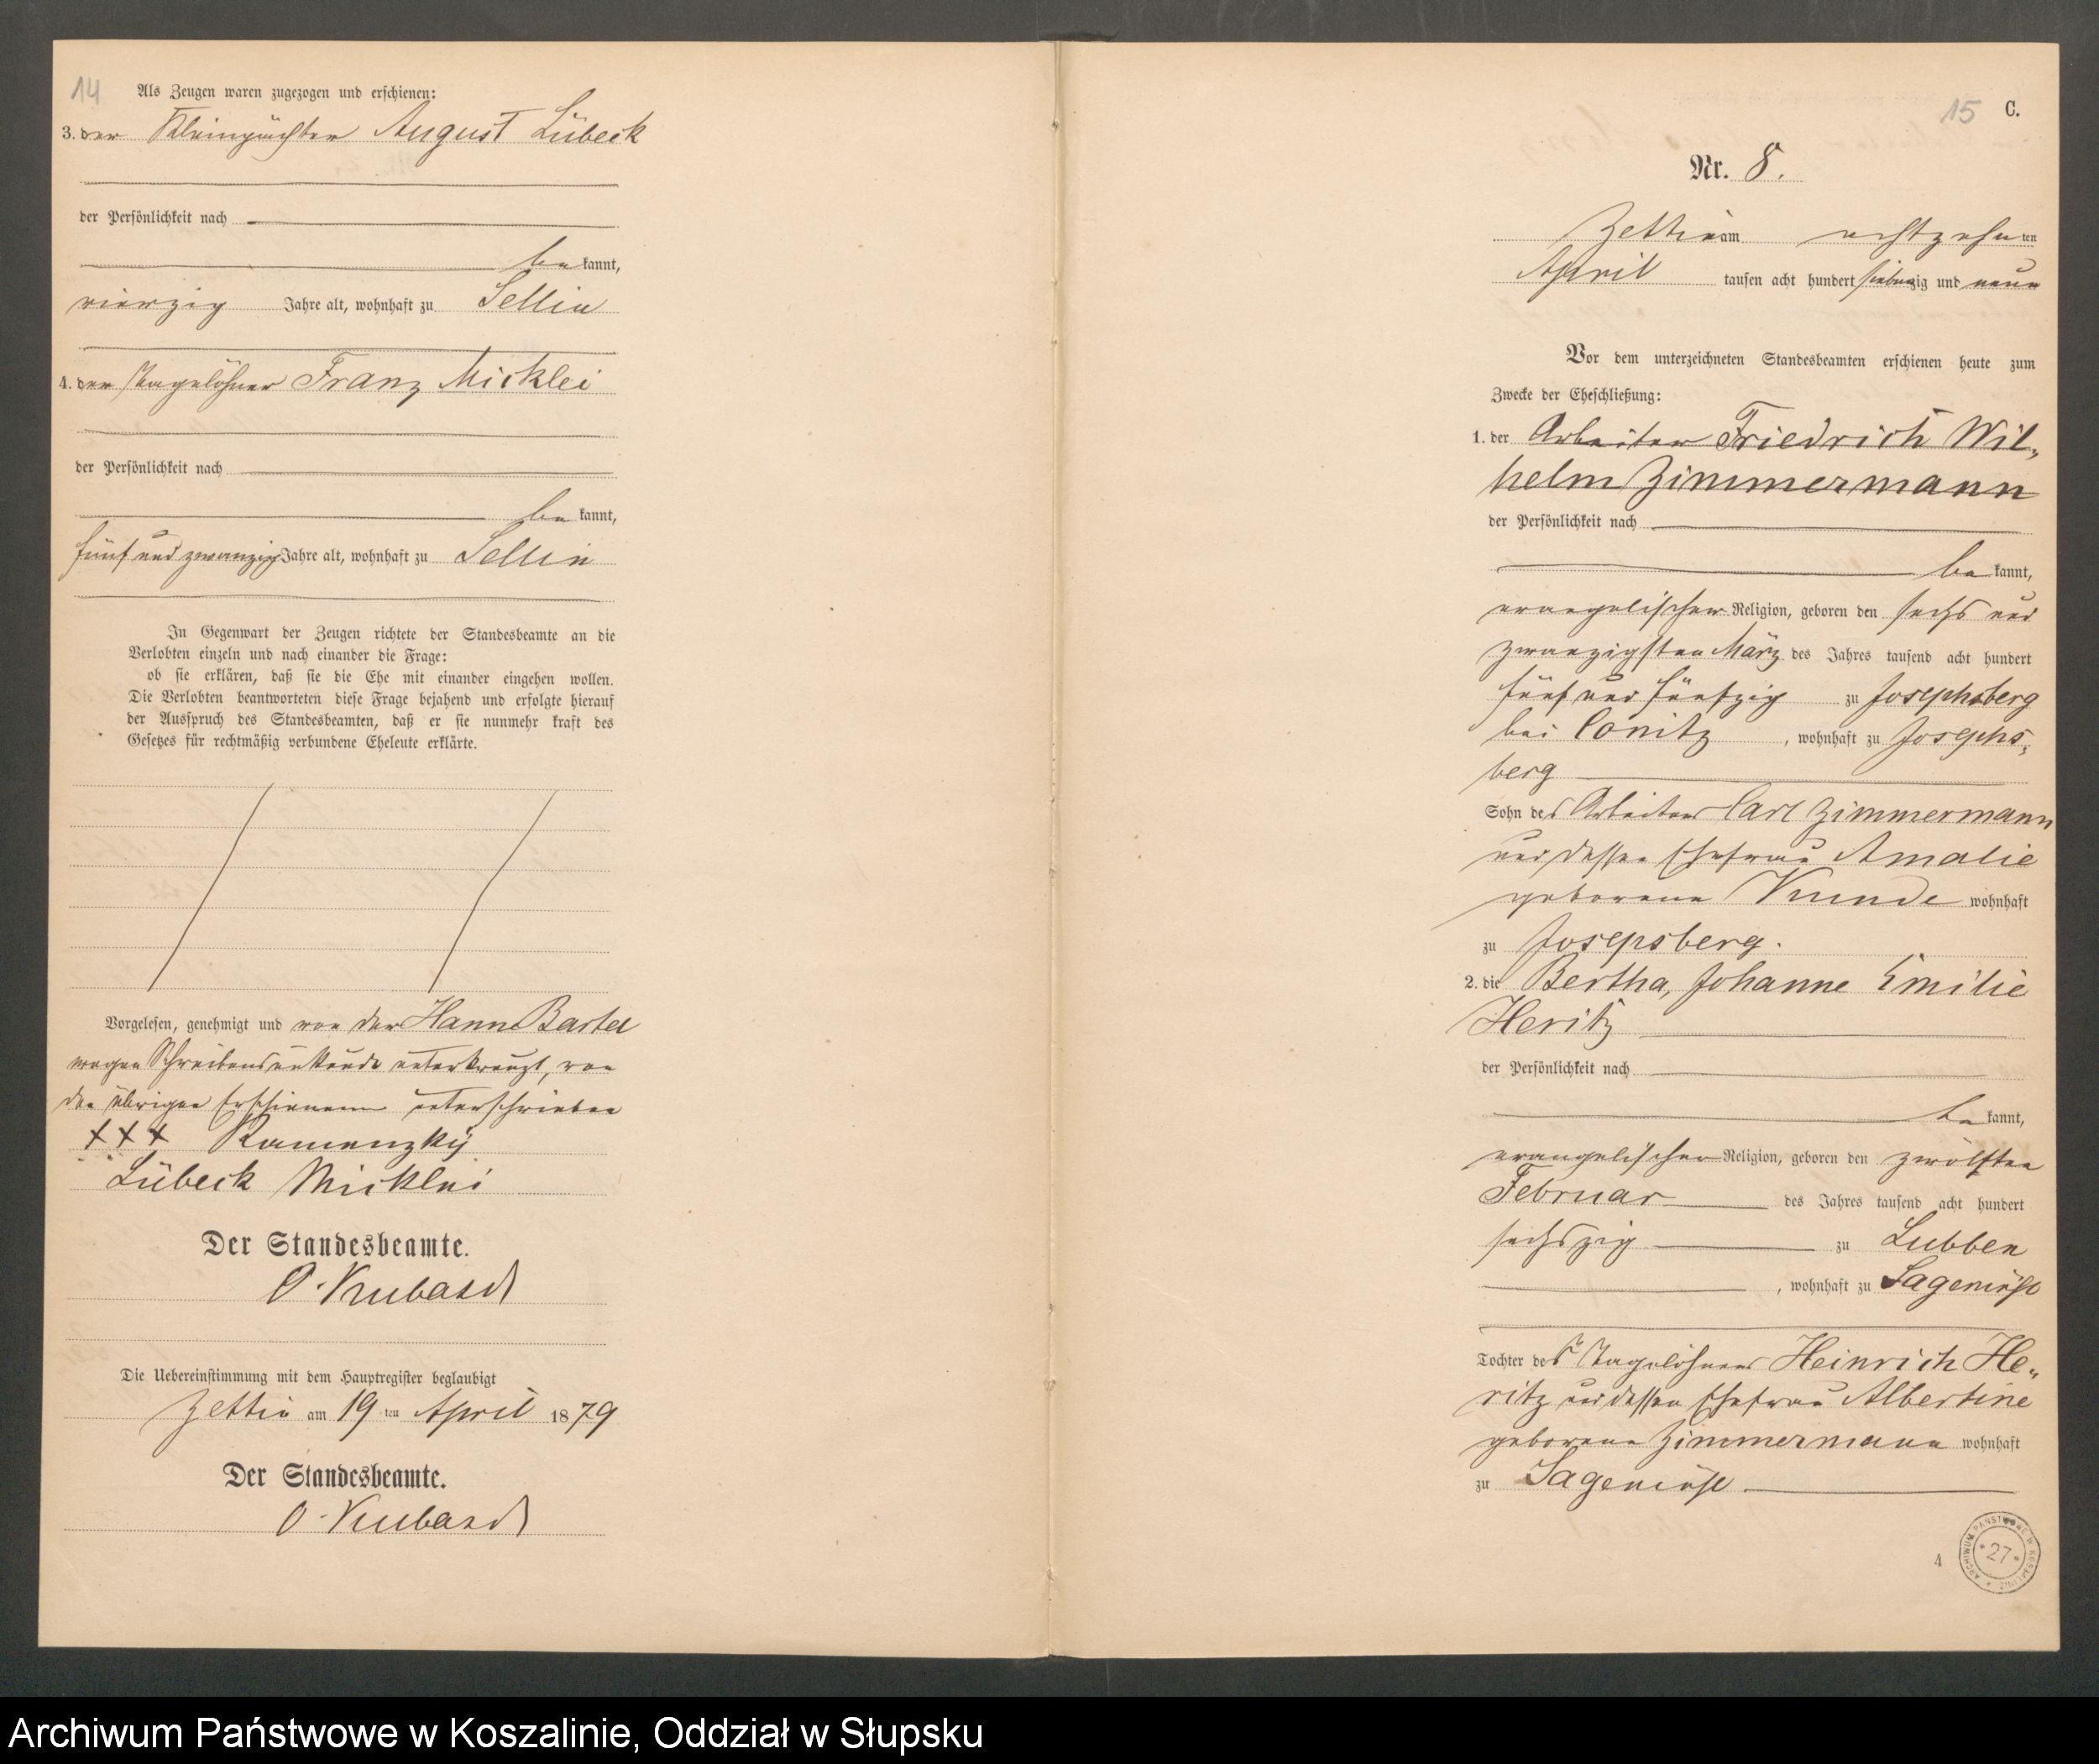 14
Als Zeugen waren zugezogen und erschienen:
3. der Kleinpächter August Lübeck
der Persönlichkeit nach
be kannt,
vierzig Jahre alt, wohnhaft zu Sellin
4. der Tagelöhner Franz Micklei
der Persönlichkeit nach
be kannt,
fünf und zwanzig Jahre alt, wohnhaft zu Sellin
In Gegenwart der Zeugen richtete der Standesbeamte an die
Verlobten einzeln und nach einander die Frage:
ob sie erklären, daß sie die Ehe mit einander eingehen wollen.
Die Verlobten beantworteten diese Frage bejahend und erfolgte hierauf
der Ausspruch des Standesbeamten, daß er sie nunmehr kraft des
Gesetzes für rechtmäßig verbundene Eheleute erklärte.
Vorgelesen, genehmigt und von der Hanne Bartel
wegen Schreibensunkunde unterkreuzt, von
den übrigen Erschienenen unterschrieben
+++ Kamenzky
Lübeck Micklei
Der Standesbeamte.
O. Kubard
Die Uebereinstimmung mit dem Hauptregister beglaubigt
Zettin am 19 ten April 1879
Der Standesbeamte.
O. Kubard
15 C.
Nr. 8.
Zettin am achtzehn ten
April tausen acht hundert siebenzig und neun
Vor dem unterzeichneten Standesbeamten erschienen heute zum
Zwecke der Eheschließung:
1. der Arbeiter Friedrich Wil-
helm Zimmermann
der Persönlichkeit nach
be kannt,
evangelischer Religion, geboren den sechs und
zwanzigsten März des Jahres tausend acht hundert
fünf und fünfzig zu Josephsberg
bei Conitz, wohnhaft zu Josephs-
berg
Sohn des Arbeiters Carl Zimmermann
und dessen Ehefrau Amalie
geborene Kunde wohnhaft
zu Josepsberg.
2. die Bertha, Johanne Emilie
Heritz
der Persönlichkeit nach
be kannt,
evangelischer Religion, geboren den zwölften
Februar des Jahres tausend acht hundert
sechszig zu Lubben
, wohnhaft zu Sagemühl
Tochter des Tagelöhners Heinrich He-
ritz und dessen Ehefrau Albertine
geborene Zimmermann wohnhaft
zu Sagemühl
4
ARCHIWUM PAŃSTWOWE W KOSZALINIE
*27*
Archiwum Państwowe w Koszalinie, Oddział w Słupsku